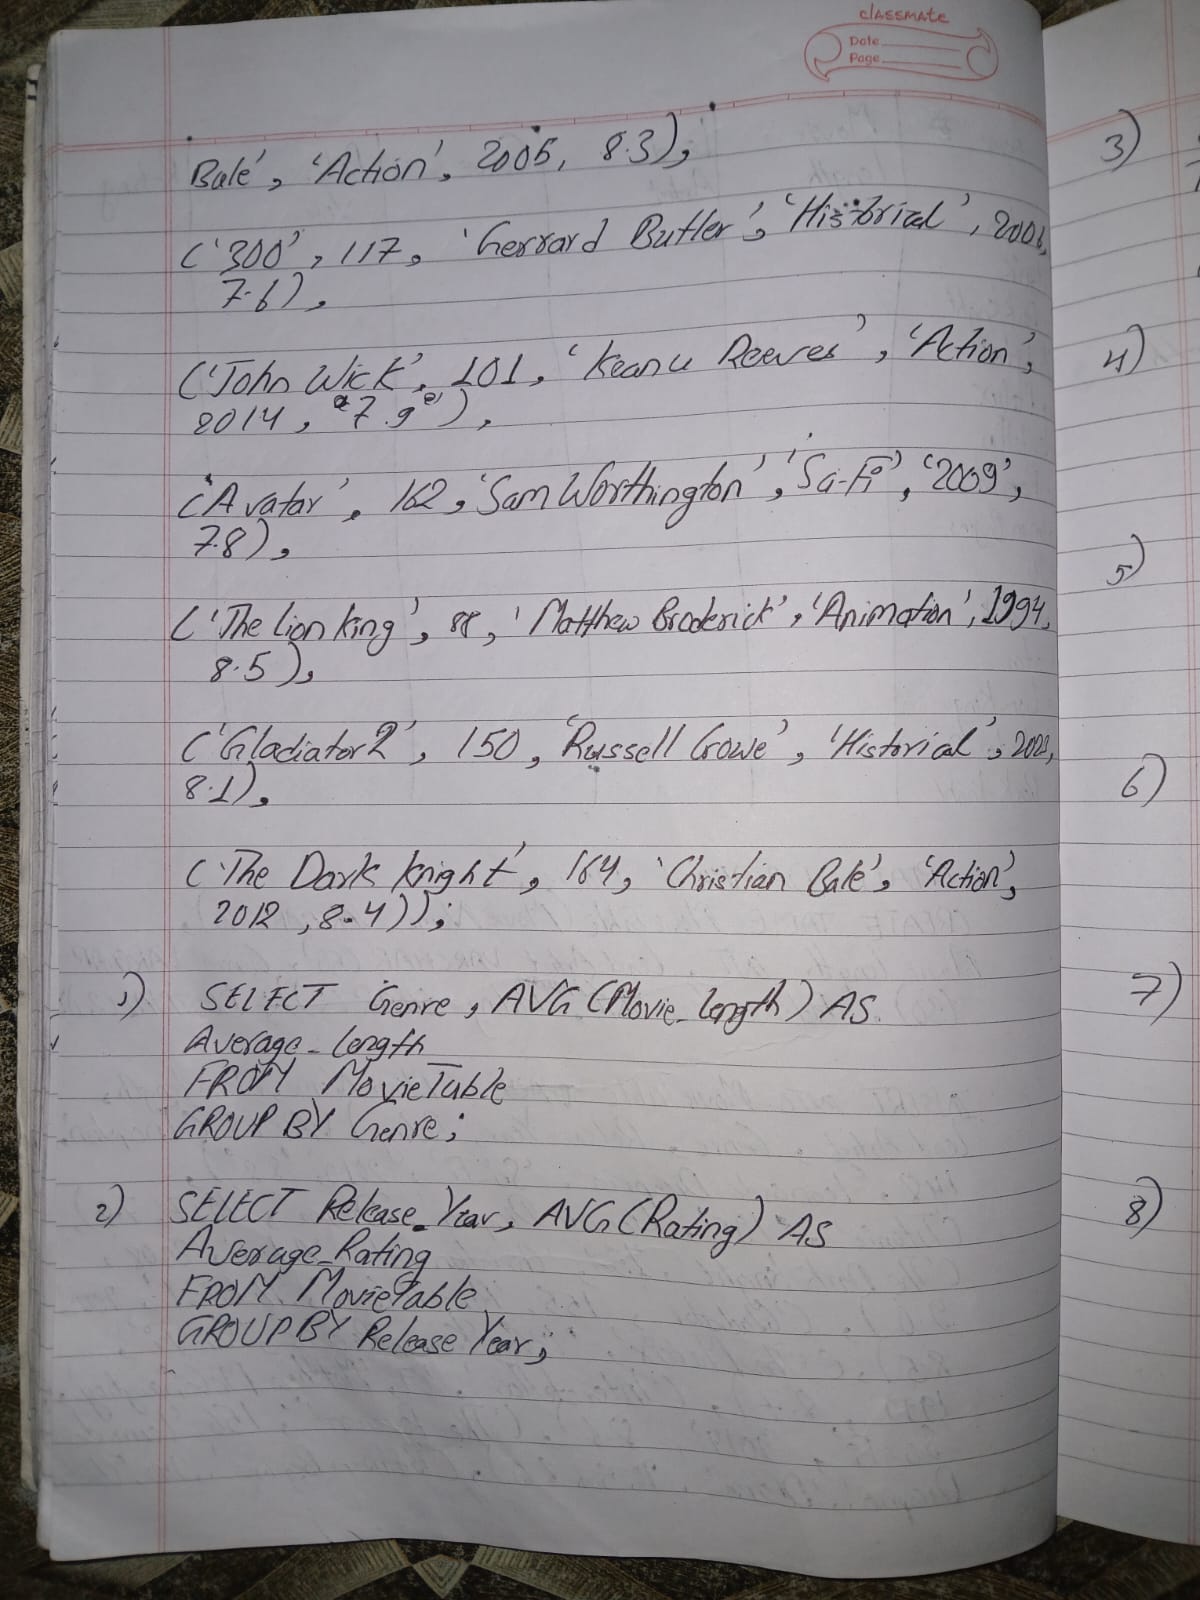 classmate
Date
Page
Bale', 'Action', 2005, 8.3),
('300', 117, 'Gerrard Butler', 'Historical', 2006,
7.6),
('John Wick', 101, 'Keanu Reeves', 'Action',
2014, 7.9),
('Avatar', 162, 'Sam Worthington', 'Sci-Fi', '2009',
7.8),
('The Lion King', 88, 'Matthew Broderick', 'Animation', 1994,
8.5),
('Gladiator 2', 150, 'Russell Crowe', 'Historical',
8.1),
('The Dark Knight', 164, 'Christian Bale', 'Action',
2012, 8.4));
1) SELECT Genre, AVG(Movie_length) AS
Average_length
FROM MovieTable
GROUP BY Genre;
2) SELECT Release_Year, AVG(Rating) AS
Average_Rating
FROM MovieTable
GROUP BY Release Year;
3)
4)
5)
6)
7)
8)